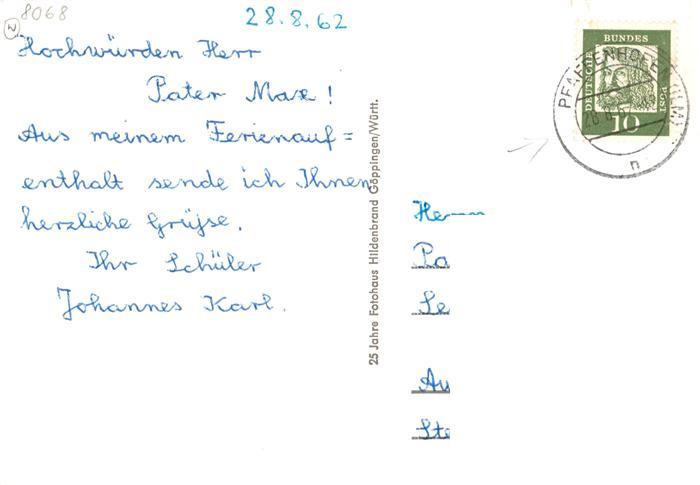 8068
N
28.8.62
Hochwürden Herr
Pater Max !
Aus meinem Ferienauf=
enthalt sende ich Ihnen
herzliche Grüsse.
Ihr Schüler
Johannes Karl.
25 Jahre Fotohaus Hildenbrand Göppingen/Württ.
DEUTSCHE BUNDES POST
10
PFAFFENHOFEN (ILM)
n
Her
Pa
Se
Au
Ste